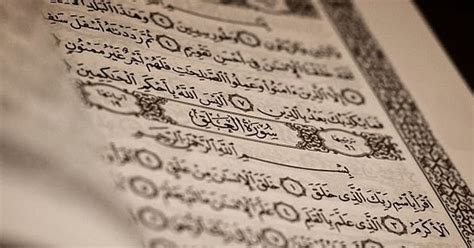 بِسْمِ
وَطُورِ سِينِينَ ٢ وَهَٰذَا ٱلْبَلَدِ
خَلَقْنَا ٱلْإِنسَٰنَ فِىٓ أَحْسَنِ تَقْوِيمٍ ٤ ثُمَّ رَدَدْنَٰهُ أَسْفَلَ
ٱلَّذِينَ ءَامَنُوا۟ وَعَمِلُوا۟ ٱلصَّٰلِحَٰتِ فَلَهُمْ أَجْرٌ غَيْرُ مَمْنُونٍ
فَمَا يُكَذِّبُكَ بَعْدُ بِٱلدِّينِ ٧ أَلَيْسَ ٱللَّهُ بِأَحْكَمِ ٱلْحَٰكِمِينَ
سُورَةُ ٱلْعَلَقِ
بِسْمِ ٱللَّهِ ٱلرَّحْمَٰنِ ٱلرَّحِيمِ
ٱقْرَأْ بِٱسْمِ رَبِّكَ ٱلَّذِى خَلَقَ ١ خَلَقَ ٱلْإِنسَٰنَ مِنْ عَلَقٍ ٢ ٱقْرَأْ
ٱلْأَكْرَمُ ٣ ٱلَّذِى عَلَّمَ بِٱلْقَلَمِ ٤ عَلَّمَ ٱلْإِنسَٰنَ